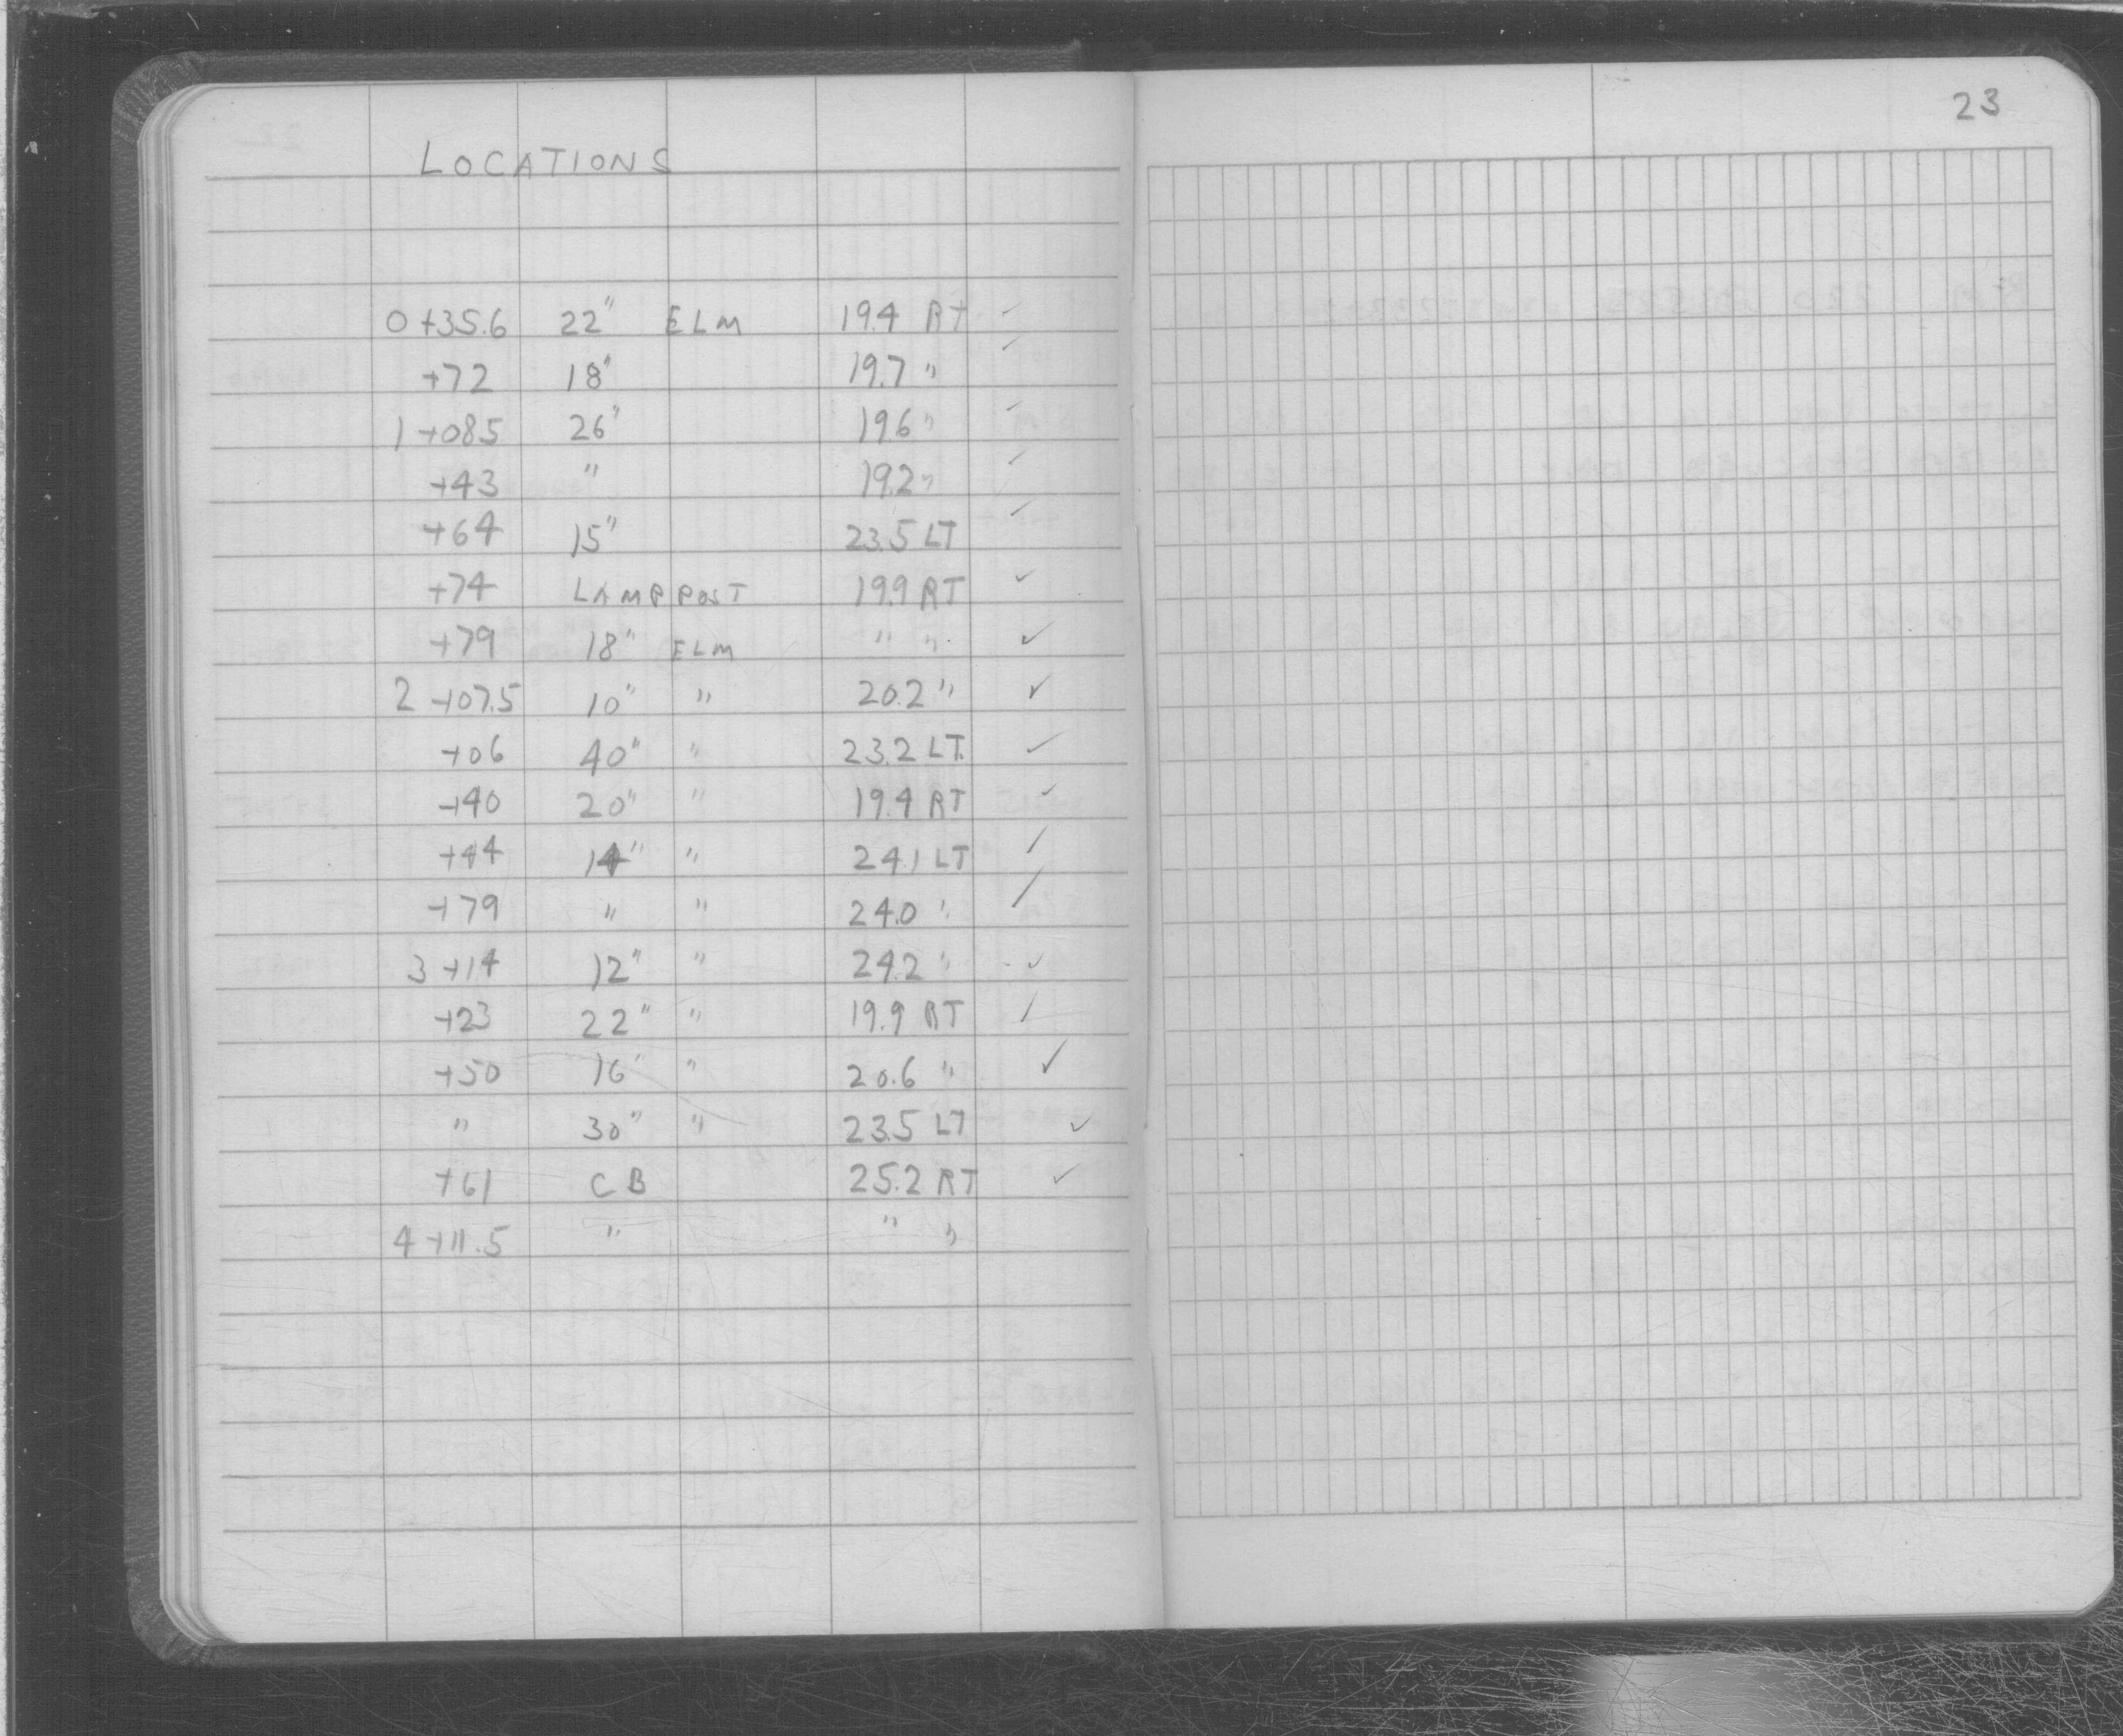 23
LOCATIONS
0+35.6 22" ELM 19.4 RT ✓
+72 18" 19.7 " ✓
1+085 26" 196 " ✓
+43 " 19.2 " ✓
+64 15" 23.5 LT ✓
+74 LAMP POST 19.9 RT ✓
+79 18" ELM " " ✓
2+07.5 10" " 20.2 " ✓
+06 40" " 23.2 LT ✓
+40 20" " 19.4 RT ✓
+44 14" " 24.1 LT ✓
+79 " " 24.0 " ✓
3+14 12" " 24.2 " ✓
+23 22" " 19.9 RT ✓
+50 16" " 20.6 " ✓
" 30" " 23.5 LT ✓
+61 CB 25.2 RT ✓
4+11.5 " " "